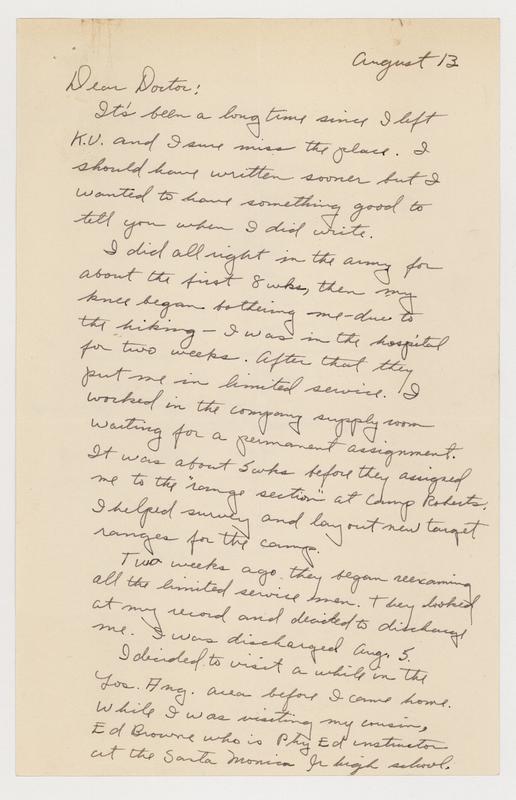 August 13
Dear Doctor:
It's been a long time since I left
K.U. and I sure miss the place. I
should have written sooner but I
wanted to have something good to
tell you when I did write.
I did all right in the army for
about the first 8 wks, then my
knee began bothering me-due to
the hiking - I was in the hospital
for two weeks. After that they
put me in limited service. I
worked in the company supply room
waiting for a permanent assignment.
It was about 5 wks before they assigned
me to the "range section" at Camp Roberts.
I helped survey and lay out new target
ranges for the camp.
Two weeks ago they began reexaming
all the limited service men. They looked
at my record and decided to discharge
me. I was discharged Aug. 5.
I decided to visit a while in the
Los. Ang. area before I came home.
While I was visiting my cousin,
Ed Browne who is Phy Ed instructor
at the Santa Monica Jr high school.